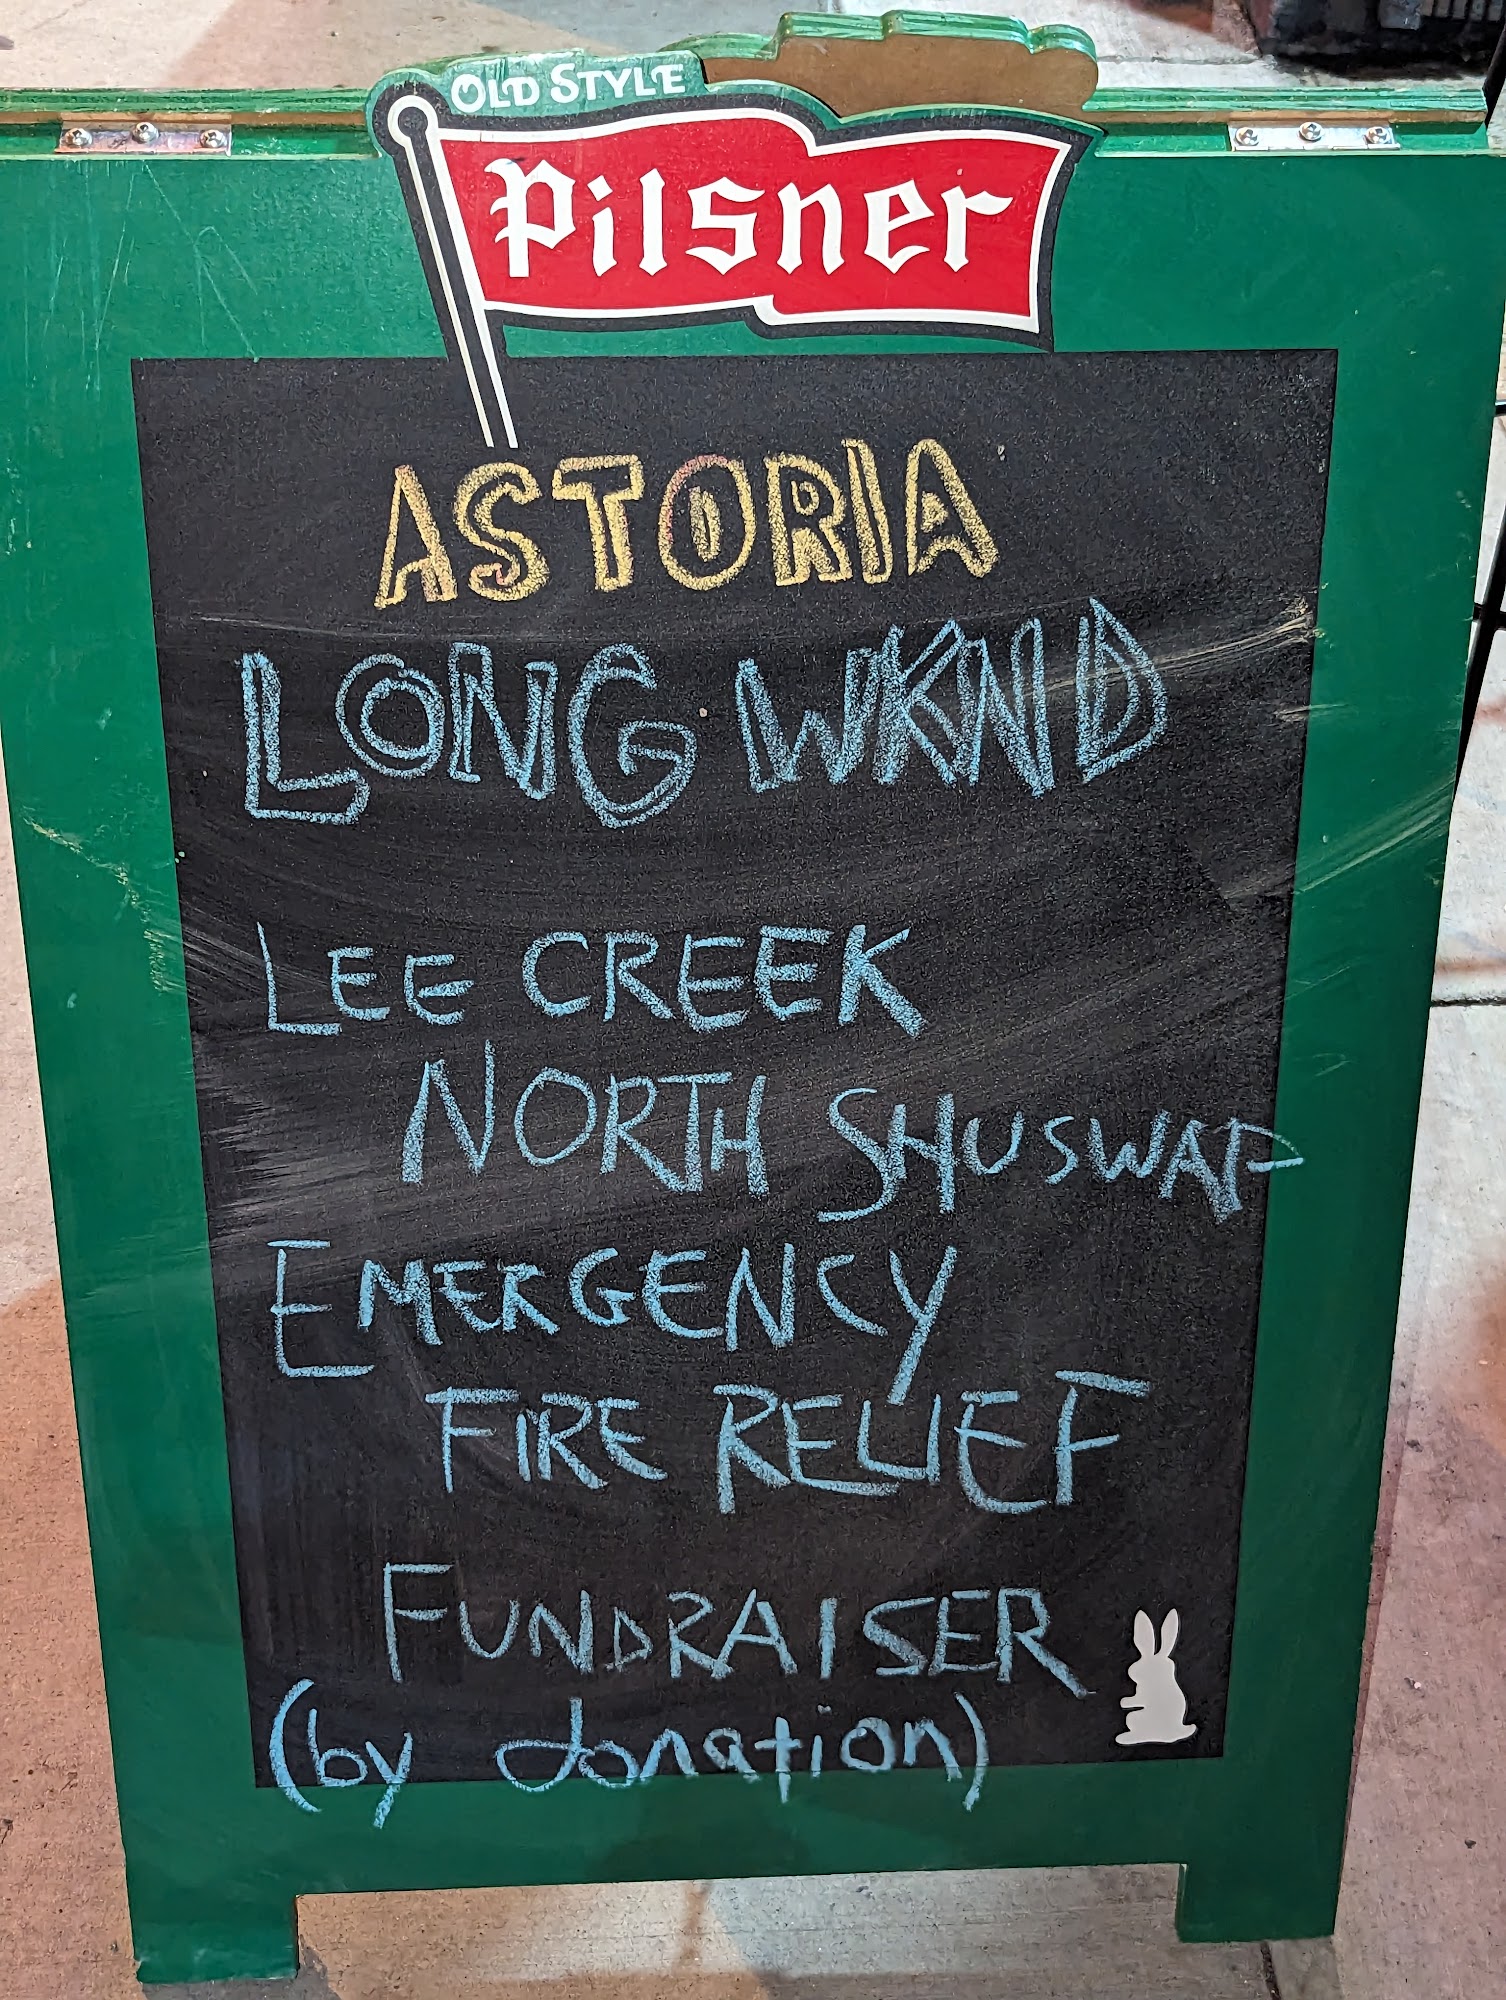 OLD STYLE
Pilsner
ASTORIA
LONG WKND
LEE CREEK
NORTH SHUSWAP
EMERGENCY
FIRE RELIEF
FUNDRAISER
(by donation)